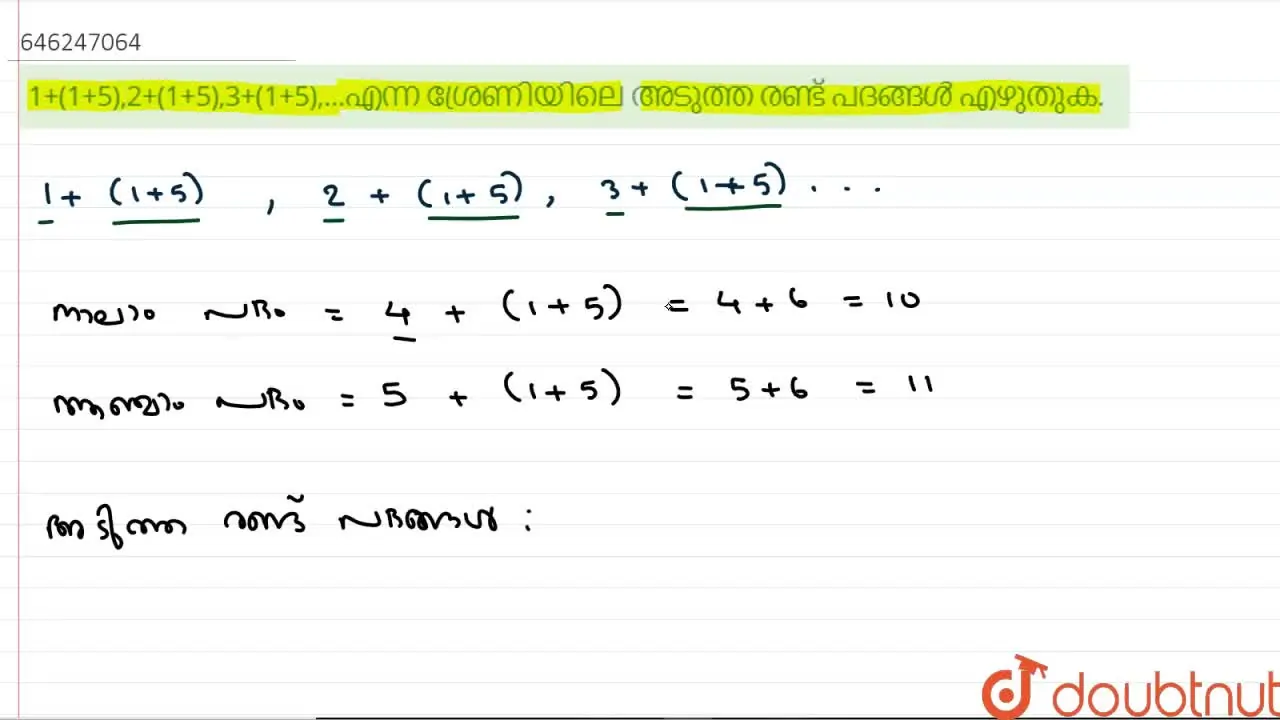 646247064
1+(1+5),2+(1+5),3+(1+5),...എന്ന ശ്രേണിയിലെ അടുത്ത രണ്ട് പദങ്ങൾ എഴുതുക.
1 + (1+5) , 2 + (1+5) , 3 + (1+5) . . .
നാലാം പദം = 4 + (1+5) = 4+6 = 10
അഞ്ചാം പദം = 5 + (1+5) = 5+6 = 11
അടുത്ത രണ്ട് പദങ്ങൾ :
doubtnut